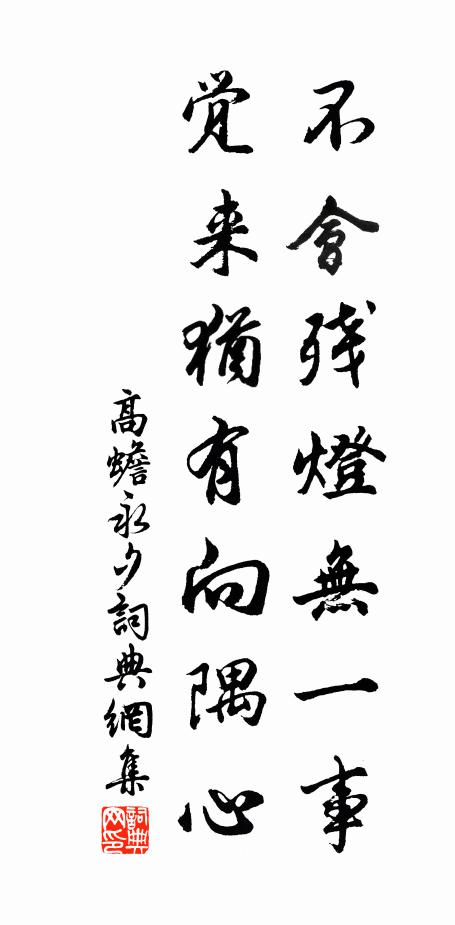 不會残燈無一事
觉来猶有向隅心
高蟾永夕詞典網集
詞典網印